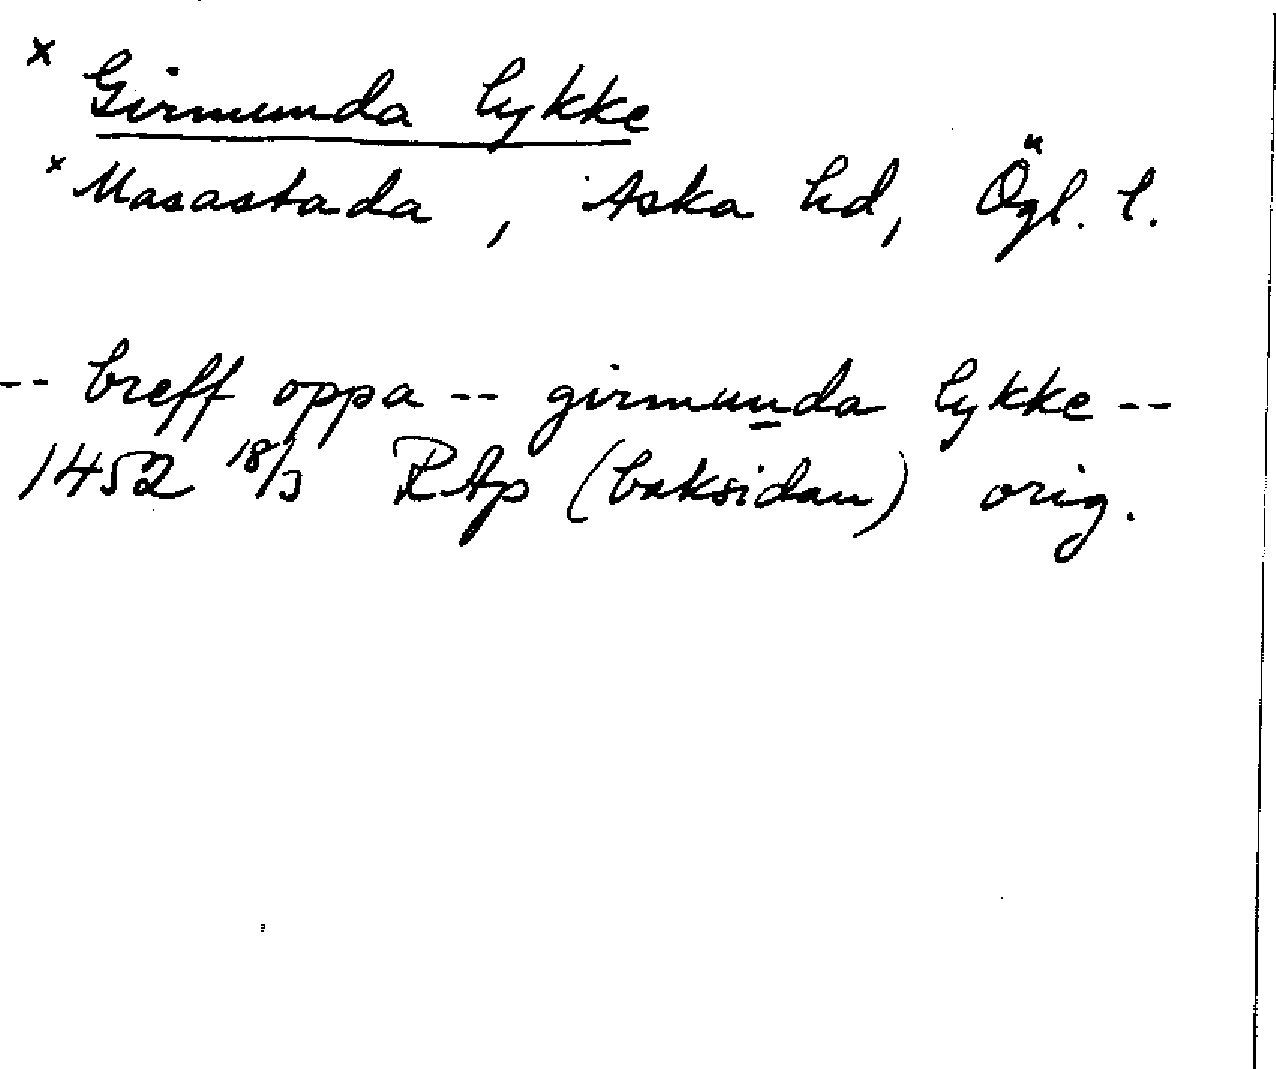 × Girmunda lykke
× Masastada, Aska hd, Ögl. l.
-- breff oppa -- girmunda lykke --
1452 18/3 RAp (baksidan) orig.